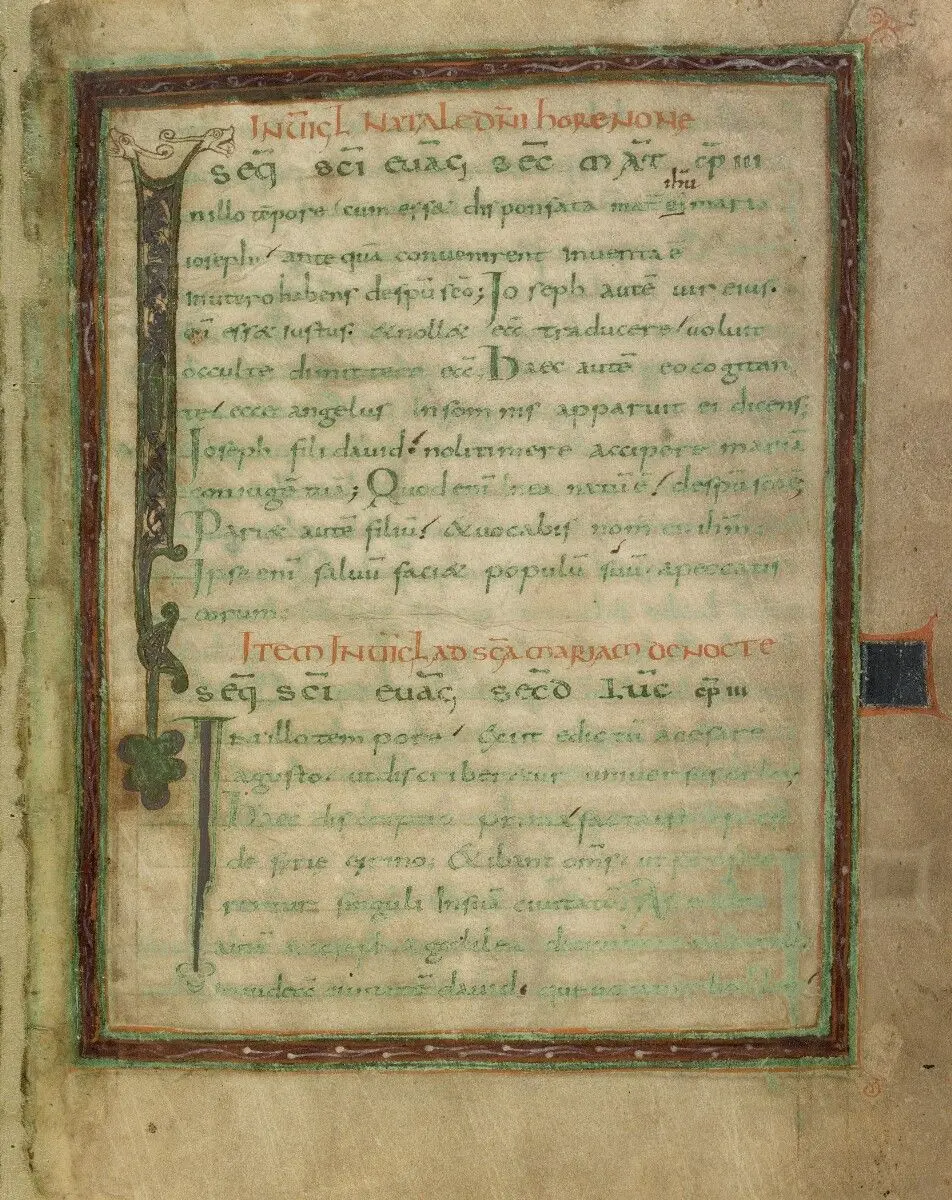 IN UIGL NATALE DNI HORE NONE
SEQ SCI EUAG SEC MAT CP III
ihu
n illo tēpore / cum esset disponsata mat ei maria
ioseph / ante quā convenirent inventa ē
in utero habens de spū scō; Ioseph autē vir eius.
cū esset iustus. & nollet eā traducere / voluit
occulte dimittere eā; Haec autē eo cogitan
te / ecce angelus in somnis apparuit ei dicens;
Ioseph fili david / noli timere accipere mariā
coniugē tuā; Quod enī in ea natū ē / de spū scō ē;
Pariet autē filiū / & vocabis nom eius ihm;
Ipse enī salvū faciet populū suū a peccatis
eorum;
ITEM IN UIGL AD SCA MARIAM DE NOCTE
SEQ SCI EUAG SECD LUC CP III
In illo tempore / Exiit edictū a cesare
agusto. ut discriberetur universus orbis.
Haec discriptio prima facta est
de syrie cyrino; & ibant oms ut
rentur singuli in suā civitatē;
autē & ioseph a galilea de civitate
in iudeā civitatē david.